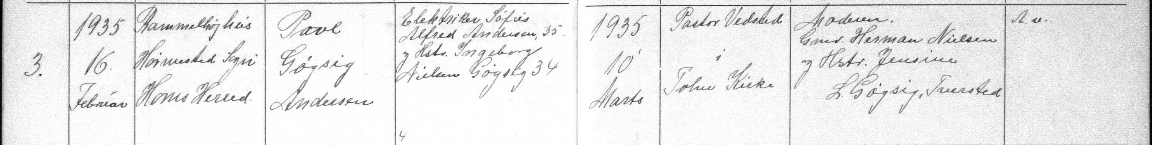 3.
1935
16.
Februar
Rammelhøjhus
Hørmested Sogn
Horns Herred.
Povl
Gøgsig
Andersen
Elektriker Søfus
Alfred Andersen, 35
og Hstr. Ingeborg
Nielsen Gøgsig 34
4
1935
10
Marts
Pastor Vedsted
i
Tolne Kirke
Moderen.
Gmd. Herman Nielsen
og Hstr. Jensine
L. Gøgsig, Tversted